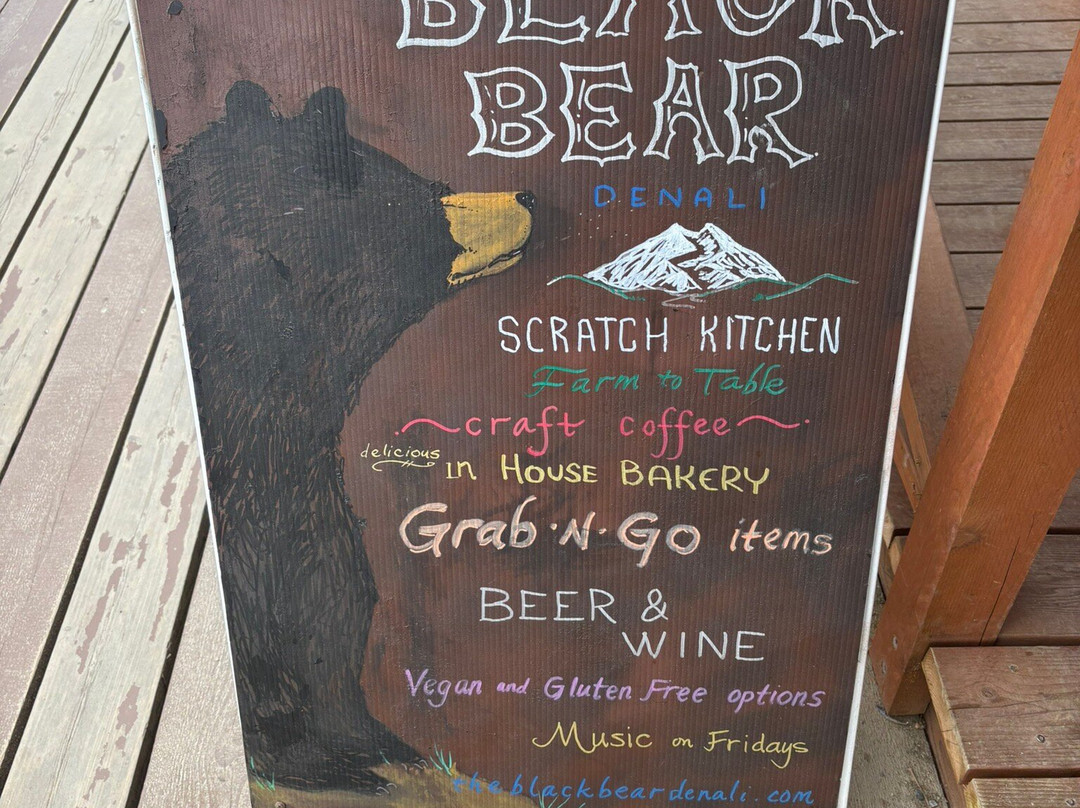 BLACK
BEAR
DENALI
SCRATCH KITCHEN
Farm to Table
craft coffee
delicious in HOUSE BAKERY
Grab·N·Go items
BEER &
WINE
Vegan and Gluten Free options
Music on Fridays
theblackbeardenali.com